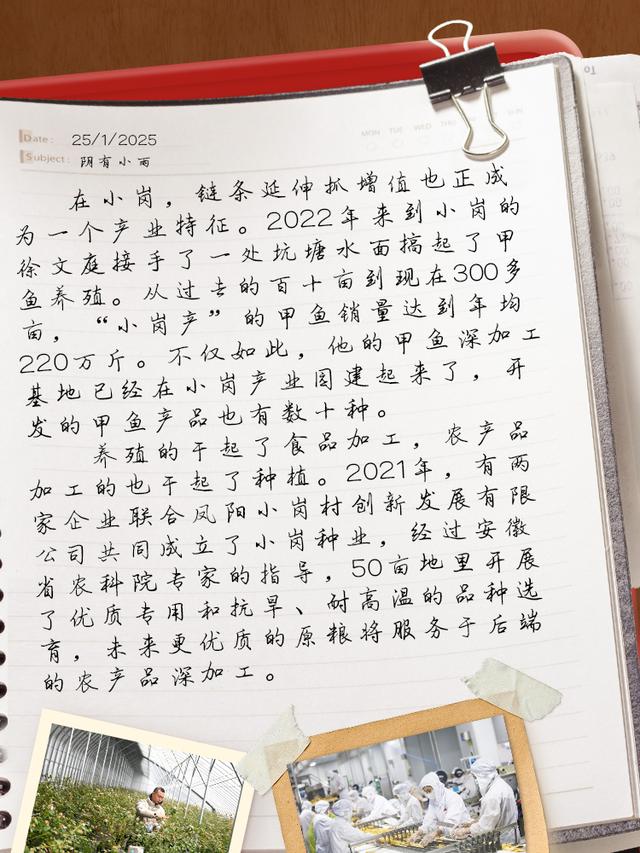 Date: 25/1/2025
MON TUE WED THU SUN
Subject: 阴有小雨
To
在小岗，链条延伸抓增值也正成
为一个产业特征。2022年来到小岗的
徐文庭接手了一处坑塘水面搞起了甲
鱼养殖。从过去的百十亩到现在300多
亩，“小岗产”的甲鱼销量达到年均
220万斤。不仅如此，他的甲鱼深加工
基地已经在小岗产业园建起来了，开
发的甲鱼产品也有数十种。
养殖的干起了食品加工，农产品
加工的也干起了种植。2021年，有两
家企业联合凤阳小岗村创新发展有限
公司共同成立了小岗种业，经过安徽
省农科院专家的指导，50亩地里开展
了优质专用和抗旱、耐高温的品种选
育，未来更优质的原粮将服务于后端
的农产品深加工。